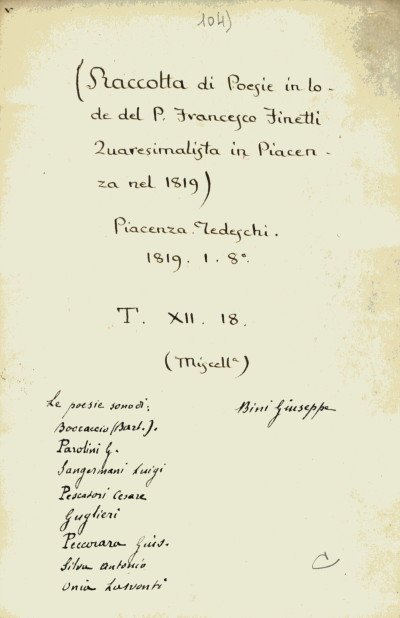 104)
(Raccolta di Poesie in lo-
de del P. Francesco Finetti
Quaresimalista in Piacen-
za nel 1819)
Piacenza. Tedeschi.
1819. 1. 8°.
T. XII. 18.
(Miscellª)
Le poesie sono di:
Bini Giuseppe
Boccaccio (Bart.).
Parolini G.
Sangermani Luigi
Pescatori Cesare
Guglieri
Peccorara Gius.
Silva Antonio
Onia
C